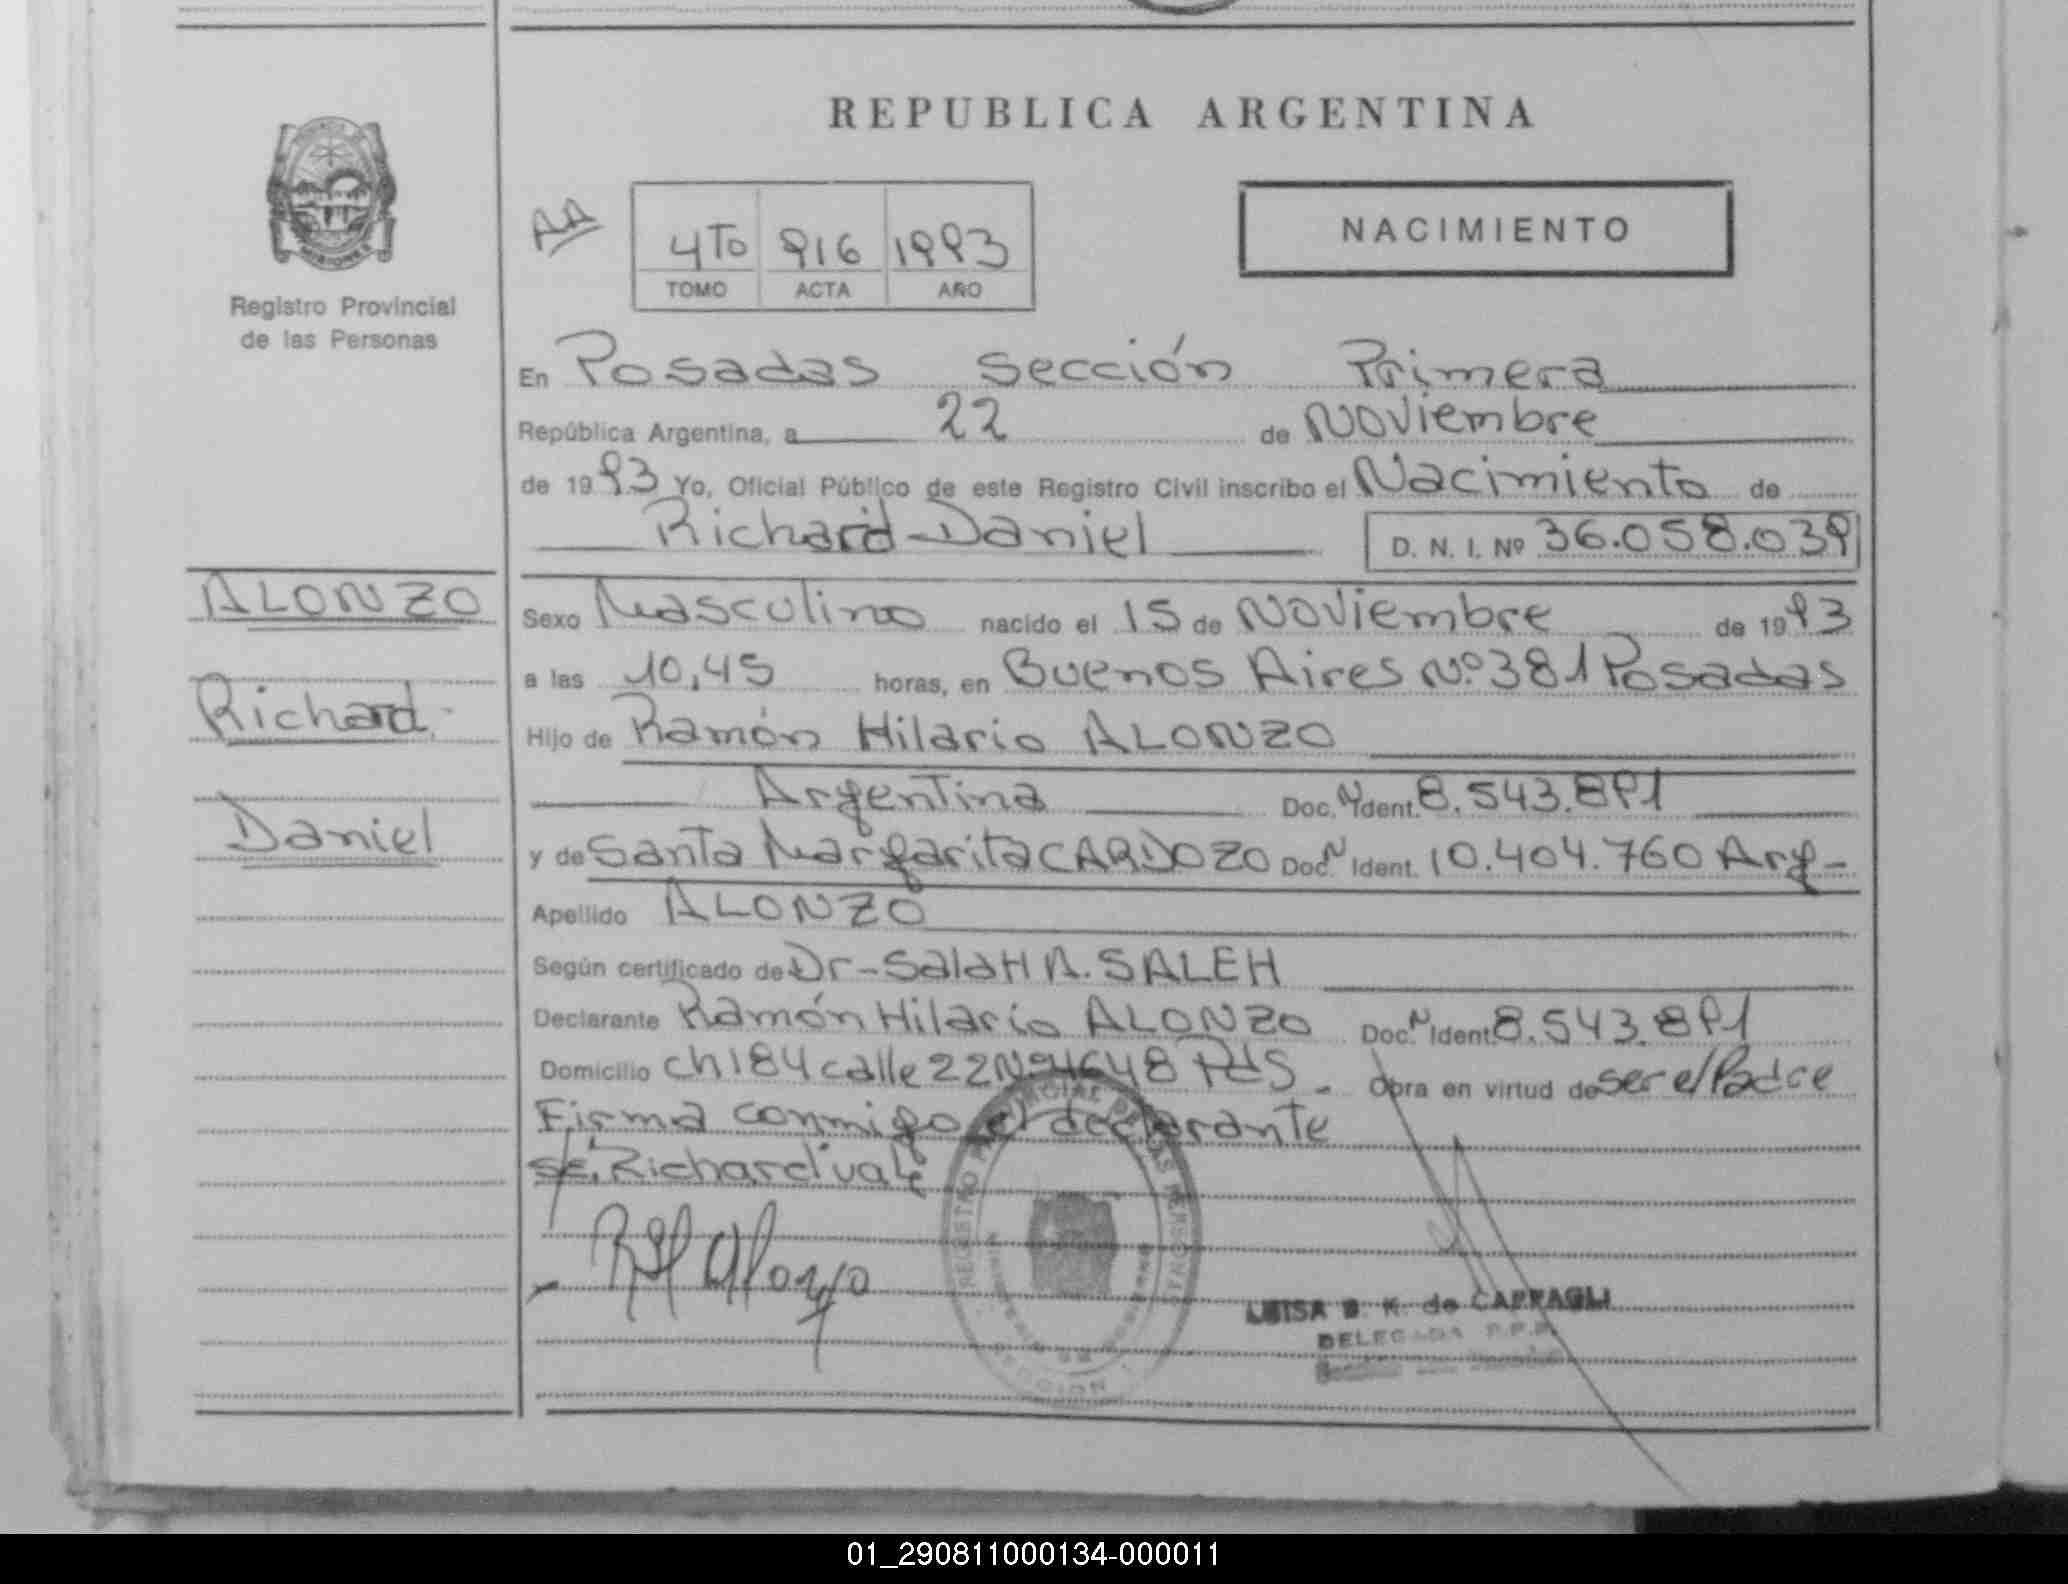 REPUBLICA ARGENTINA
Registro Provincial
de las Personas
AA
4To 916 1993
TOMO ACTA AÑO
NACIMIENTO
En Posadas Sección Primera
República Argentina, a 22 de Noviembre
de 1993 Yo, Oficial Público de este Registro Civil inscribo el Nacimiento de
Richard Daniel D. N. I. Nº 36.058.039
ALONZO
Richard
Daniel
Sexo Masculino nacido el 15 de Noviembre de 1993
a las 10,45 horas, en Buenos Aires Nº 381 Posadas
Hijo de Ramón Hilario ALONZO
Argentina Doc. N Ident. 8.543.891
y de Santa Margarita CARDOZO Doc. N Ident. 10.404.760 Arg-
Apellido ALONZO
Según certificado de Dr-SalaH A. SALEH
Declarante Ramón Hilario ALONZO Doc. N Ident. 8.543.891
Domicilio ch 184 calle 22 Nº 4648 Pds. Obra en virtud de ser el Padre
Firma conmigo el declarante
s/r. Richard vale
RH Alonzo
REGISTRO PROVINCIAL DE LAS PERSONAS
MINISTERIO DE GOBIERNO
LUISA B. K. de CAPPAGLI
DELEGADA R.P.P.
01_290811000134-000011